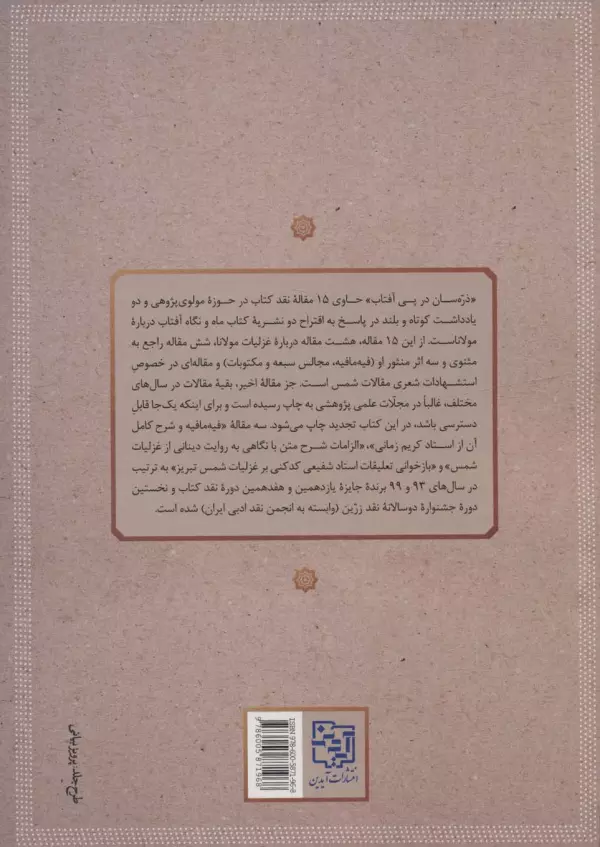 «ذرّه‌سان در پی آفتاب» حاوی ۱۵ مقالهٔ نقد کتاب در حوزهٔ مولوی‌پژوهی و دو
یادداشت کوتاه و بلند در پاسخ به اقتراح دو نشریهٔ کتاب ماه و نگاه آفتاب دربارهٔ
مولاناست. از این ۱۵ مقاله، هشت مقاله دربارهٔ غزلیات مولانا، شش مقاله راجع به
مثنوی و سه اثر منثور او (فیه‌مافیه، مجالس سبعه و مکتوبات) و مقاله‌ای در خصوصِ
استشهادات شعری مقالات شمس است. جز مقالهٔ اخیر، بقیهٔ مقالات در سال‌های
مختلف، غالباً در مجلّات علمی پژوهشی به چاپ رسیده است و برای اینکه یک‌جا قابلِ
دسترسی باشد، در این کتاب تجدید چاپ می‌شود. سه مقالهٔ «فیه‌مافیه و شرح کامل
آن از استاد کریم زمانی»، «الزامات شرح متن با نگاهی به روایت دینانی از غزلیات
شمس» و «بازخوانی تعلیقات استاد شفیعی کدکنی بر غزلیات شمس تبریز» به ترتیب
در سال‌های ۹۳ و ۹۹ برندهٔ جایزهٔ یازدهمین و هفدهمین دورهٔ نقد کتاب و نخستین
دورهٔ جشنوارهٔ دوسالانهٔ نقد زرّین (وابسته به انجمن نقد ادبی ایران) شده است.
طرح جلد: پرویز بیانی
ISBN 978-600-5871-96-8
9786005871968
آیدین
انتشارات آیدین